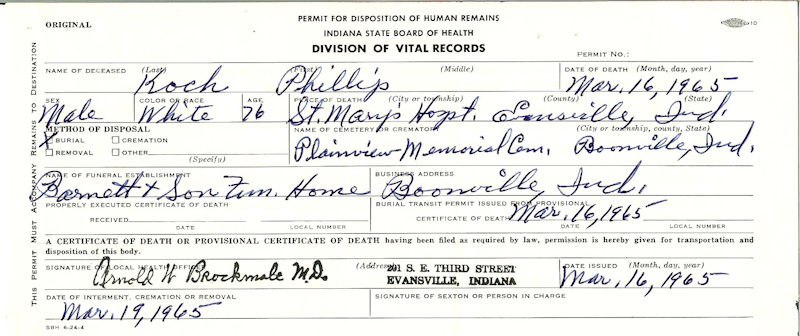 ORIGINAL
PERMIT FOR DISPOSITION OF HUMAN REMAINS
INDIANA STATE BOARD OF HEALTH
DIVISION OF VITAL RECORDS
10
PERMIT NO.:
THIS PERMIT MUST ACCOMPANY REMAINS TO DESTINATION
NAME OF DECEASED (Last) (First) (Middle) DATE OF DEATH (Month, day, year)
Koch Phillip Mar. 16, 1965
SEX COLOR OR RACE AGE PLACE OF DEATH (City or township) (County) (State)
Male White 76 St. Mary's Hospt. Evansville, Ind.
METHOD OF DISPOSAL NAME OF CEMETERY OR CREMATORY (City or township, county, State)
X BURIAL CREMATION
REMOVAL OTHER (Specify)
Plainview Memorial Cem. Boonville, Ind.
NAME OF FUNERAL ESTABLISHMENT BUSINESS ADDRESS
Barnett & Son Fun. Home Boonville, Ind.
PROPERLY EXECUTED CERTIFICATE OF DEATH BURIAL TRANSIT PERMIT ISSUED FROM PROVISIONAL
RECEIVED CERTIFICATE OF DEATH Mar. 16, 1965
DATE LOCAL NUMBER DATE LOCAL NUMBER
A CERTIFICATE OF DEATH OR PROVISIONAL CERTIFICATE OF DEATH having been filed as required by law, permission is hereby given for transportation and
disposition of this body.
SIGNATURE OF LOCAL HEALTH OFFICER (Address) DATE ISSUED (Month, day, year)
Arnold W Brockmole M.D. 201 S. E. THIRD STREET Mar. 16, 1965
EVANSVILLE, INDIANA
DATE OF INTERMENT, CREMATION OR REMOVAL SIGNATURE OF SEXTON OR PERSON IN CHARGE
Mar. 19, 1965
SBH 6-24-4